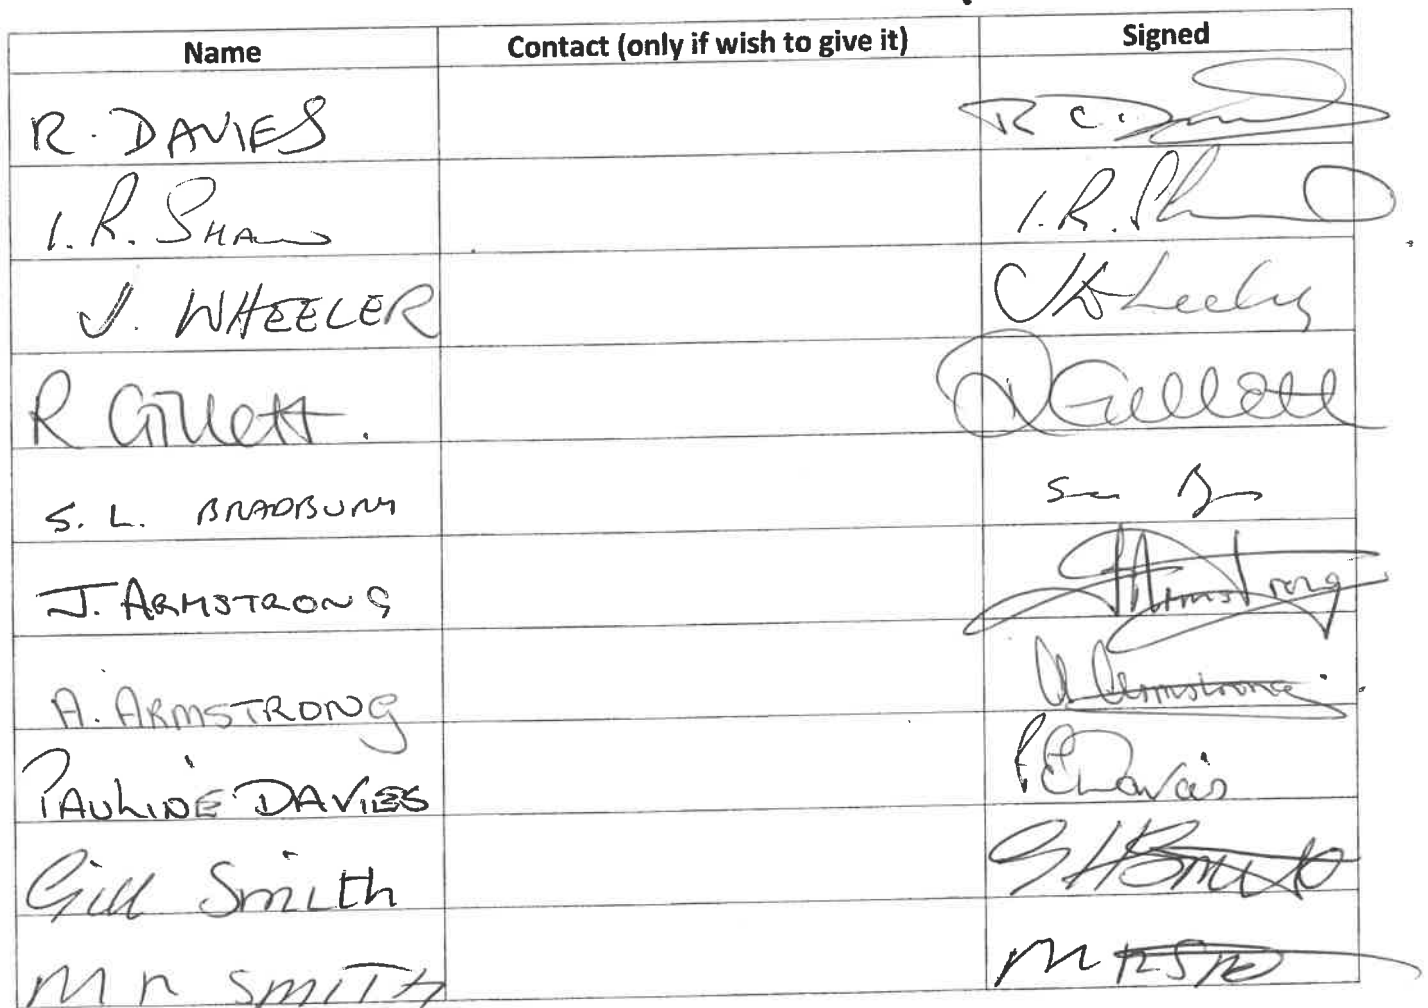 Name Contact (only if wish to give it) Signed
R. DAVIES R C.
I. R. SHAW I. R. Shaw
J. WHEELER
R Gillett. R Gillett
S. L. BRADBURY
J. ARMSTRONG J Armstrong
A. ARMSTRONG A Armstrong.
PAULINE DAVIES P E Davies
Gill Smith G H Smith
M R SMITH M R